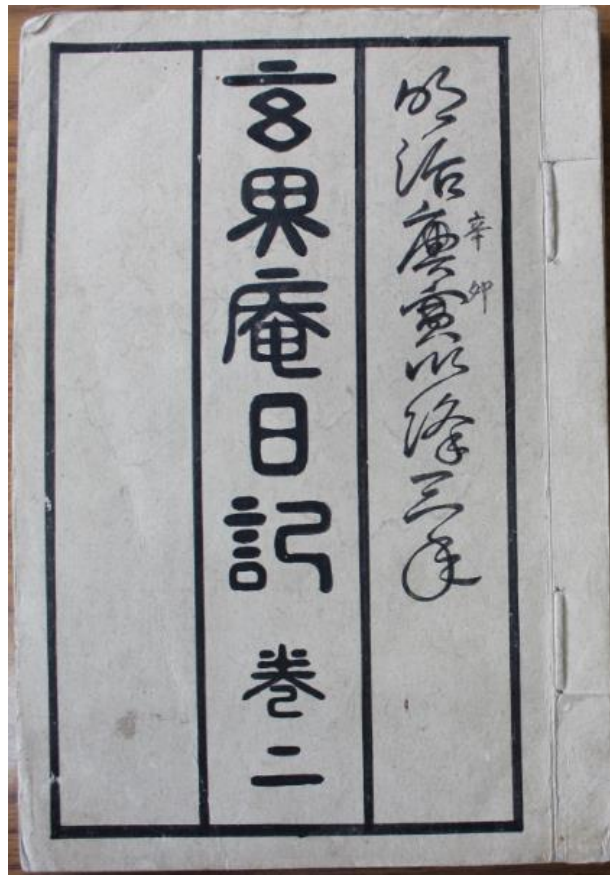 明治庚寅以降三年
辛卯
玄果庵日記 卷二